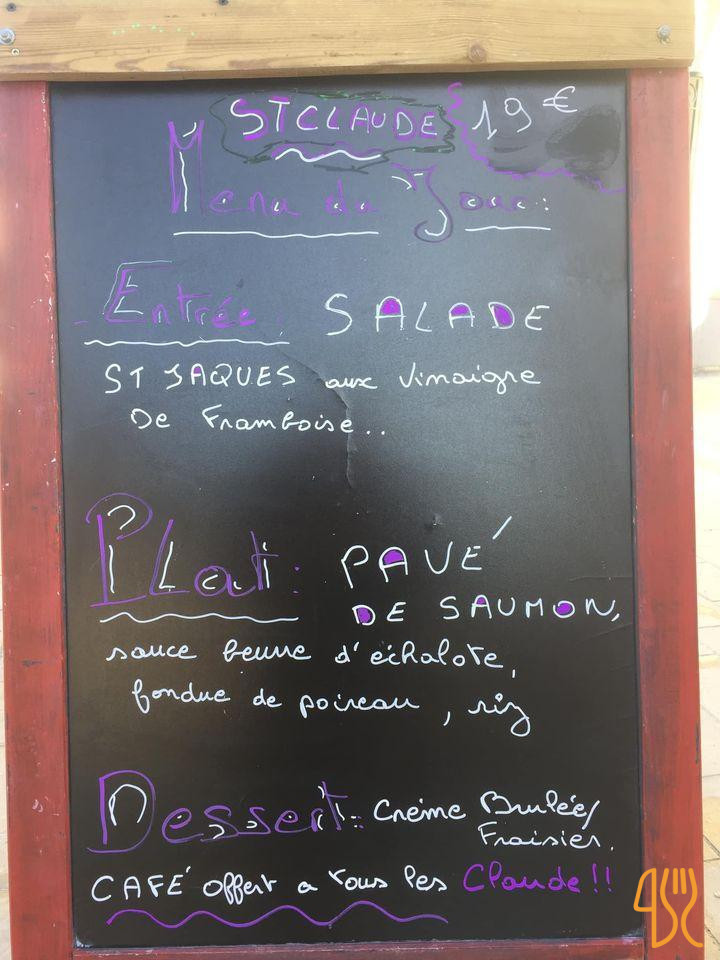 ST CLAUDE 19 €
Menu du Jour:
- Entrée. SALADE
ST JAQUES aux Vinaigre
De Framboise..
Plat: PAVÉ
DE SAUMON,
sauce beurre d'échalote,
fondue de poireau, riz
Dessert: Crème Brulée/
Fraisier.
CAFÉ offert a tous les Claude!!